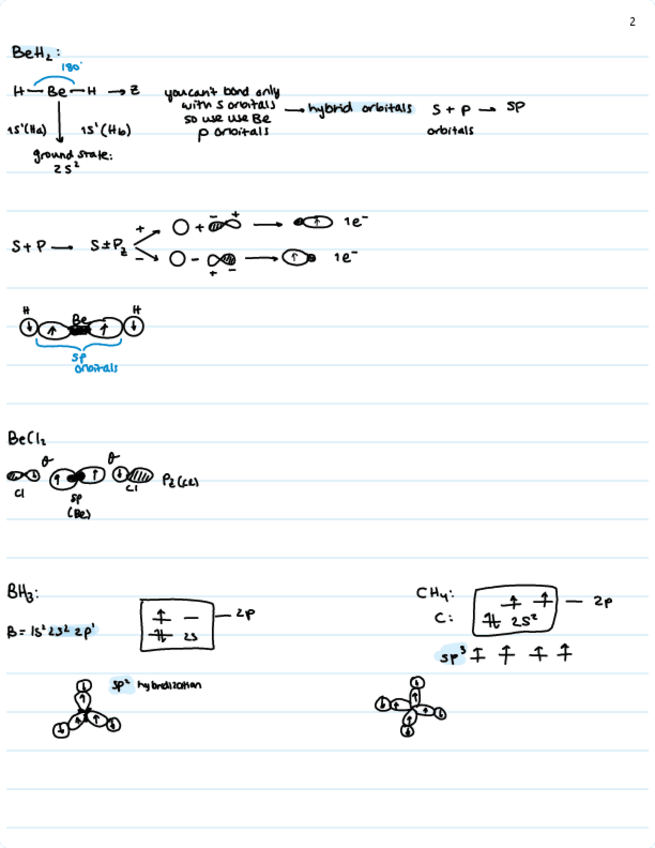 2
BeH₂:
180°
H—Be—H → z
1s¹(Ha) 1s¹(Hb)
ground state:
2s²
you can't bond only
with s orbitals
so use use Be
p orbitals
→ hybrid orbitals
s + p → sp
orbitals
+ ○ + - + → ↑ 1e⁻
s + p — s ± p_z
- ○ - + - → ↑ 1e⁻
H Be H
↓ ↑ ↑ ↓
sp
orbitals
BeCl₂
σ σ
↑ ↑ ↓ P_z(Cl)
Cl sp Cl
(Be)
BH₃:
B = 1s² 2s² 2p¹
↑ — — 2p
⥮ 2s
sp² hybridization
CH₄:
C:
↑ ↑ — 2p
⥮ 2s²
sp³ ↑ ↑ ↑ ↑